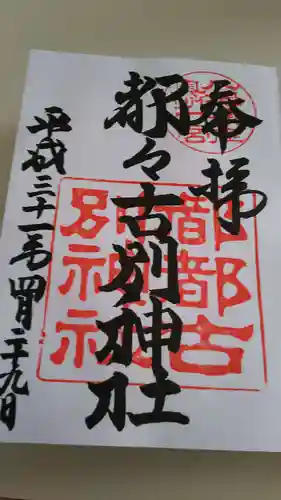 奉拝
都々古別神社
都都古別神社
平成三十一年四月二十九日